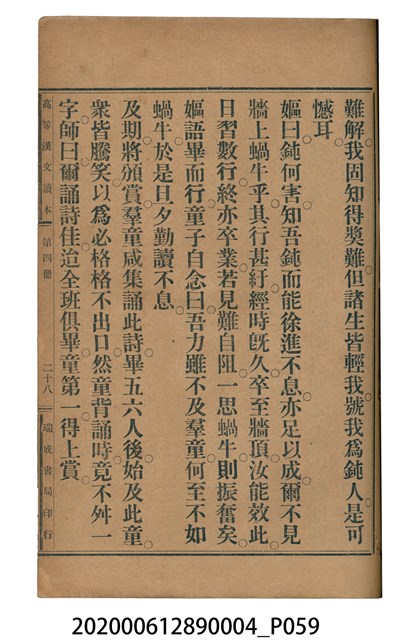 難解。我固知得奬難。但諸生皆輕我。號我爲鈍人。是可
憾耳。
嫗曰。鈍何害。知吾鈍而能徐進不息。亦足以成。爾不見
牆上蝸牛乎。其行甚紆。經時旣久。卒至牆頂。汝能效此。
日習數行。終亦卒業。若見難自阻。一思蝸牛。則振奮矣。
嫗語畢而行。童子自念曰。吾力雖不及羣童。何至不如
蝸牛。於是旦夕勤讀不息。
及期將頒賞。羣童咸集。誦此詩畢五六人後。始及此童。
衆皆騰笑。以爲必格格不出口。然童背誦時。竟不舛一
字。師曰。爾誦詩佳。迨全班俱畢。童第一。得上賞。
高等漢文讀本 第四冊 二十八 瑞成書局印行
202000612890004_P059